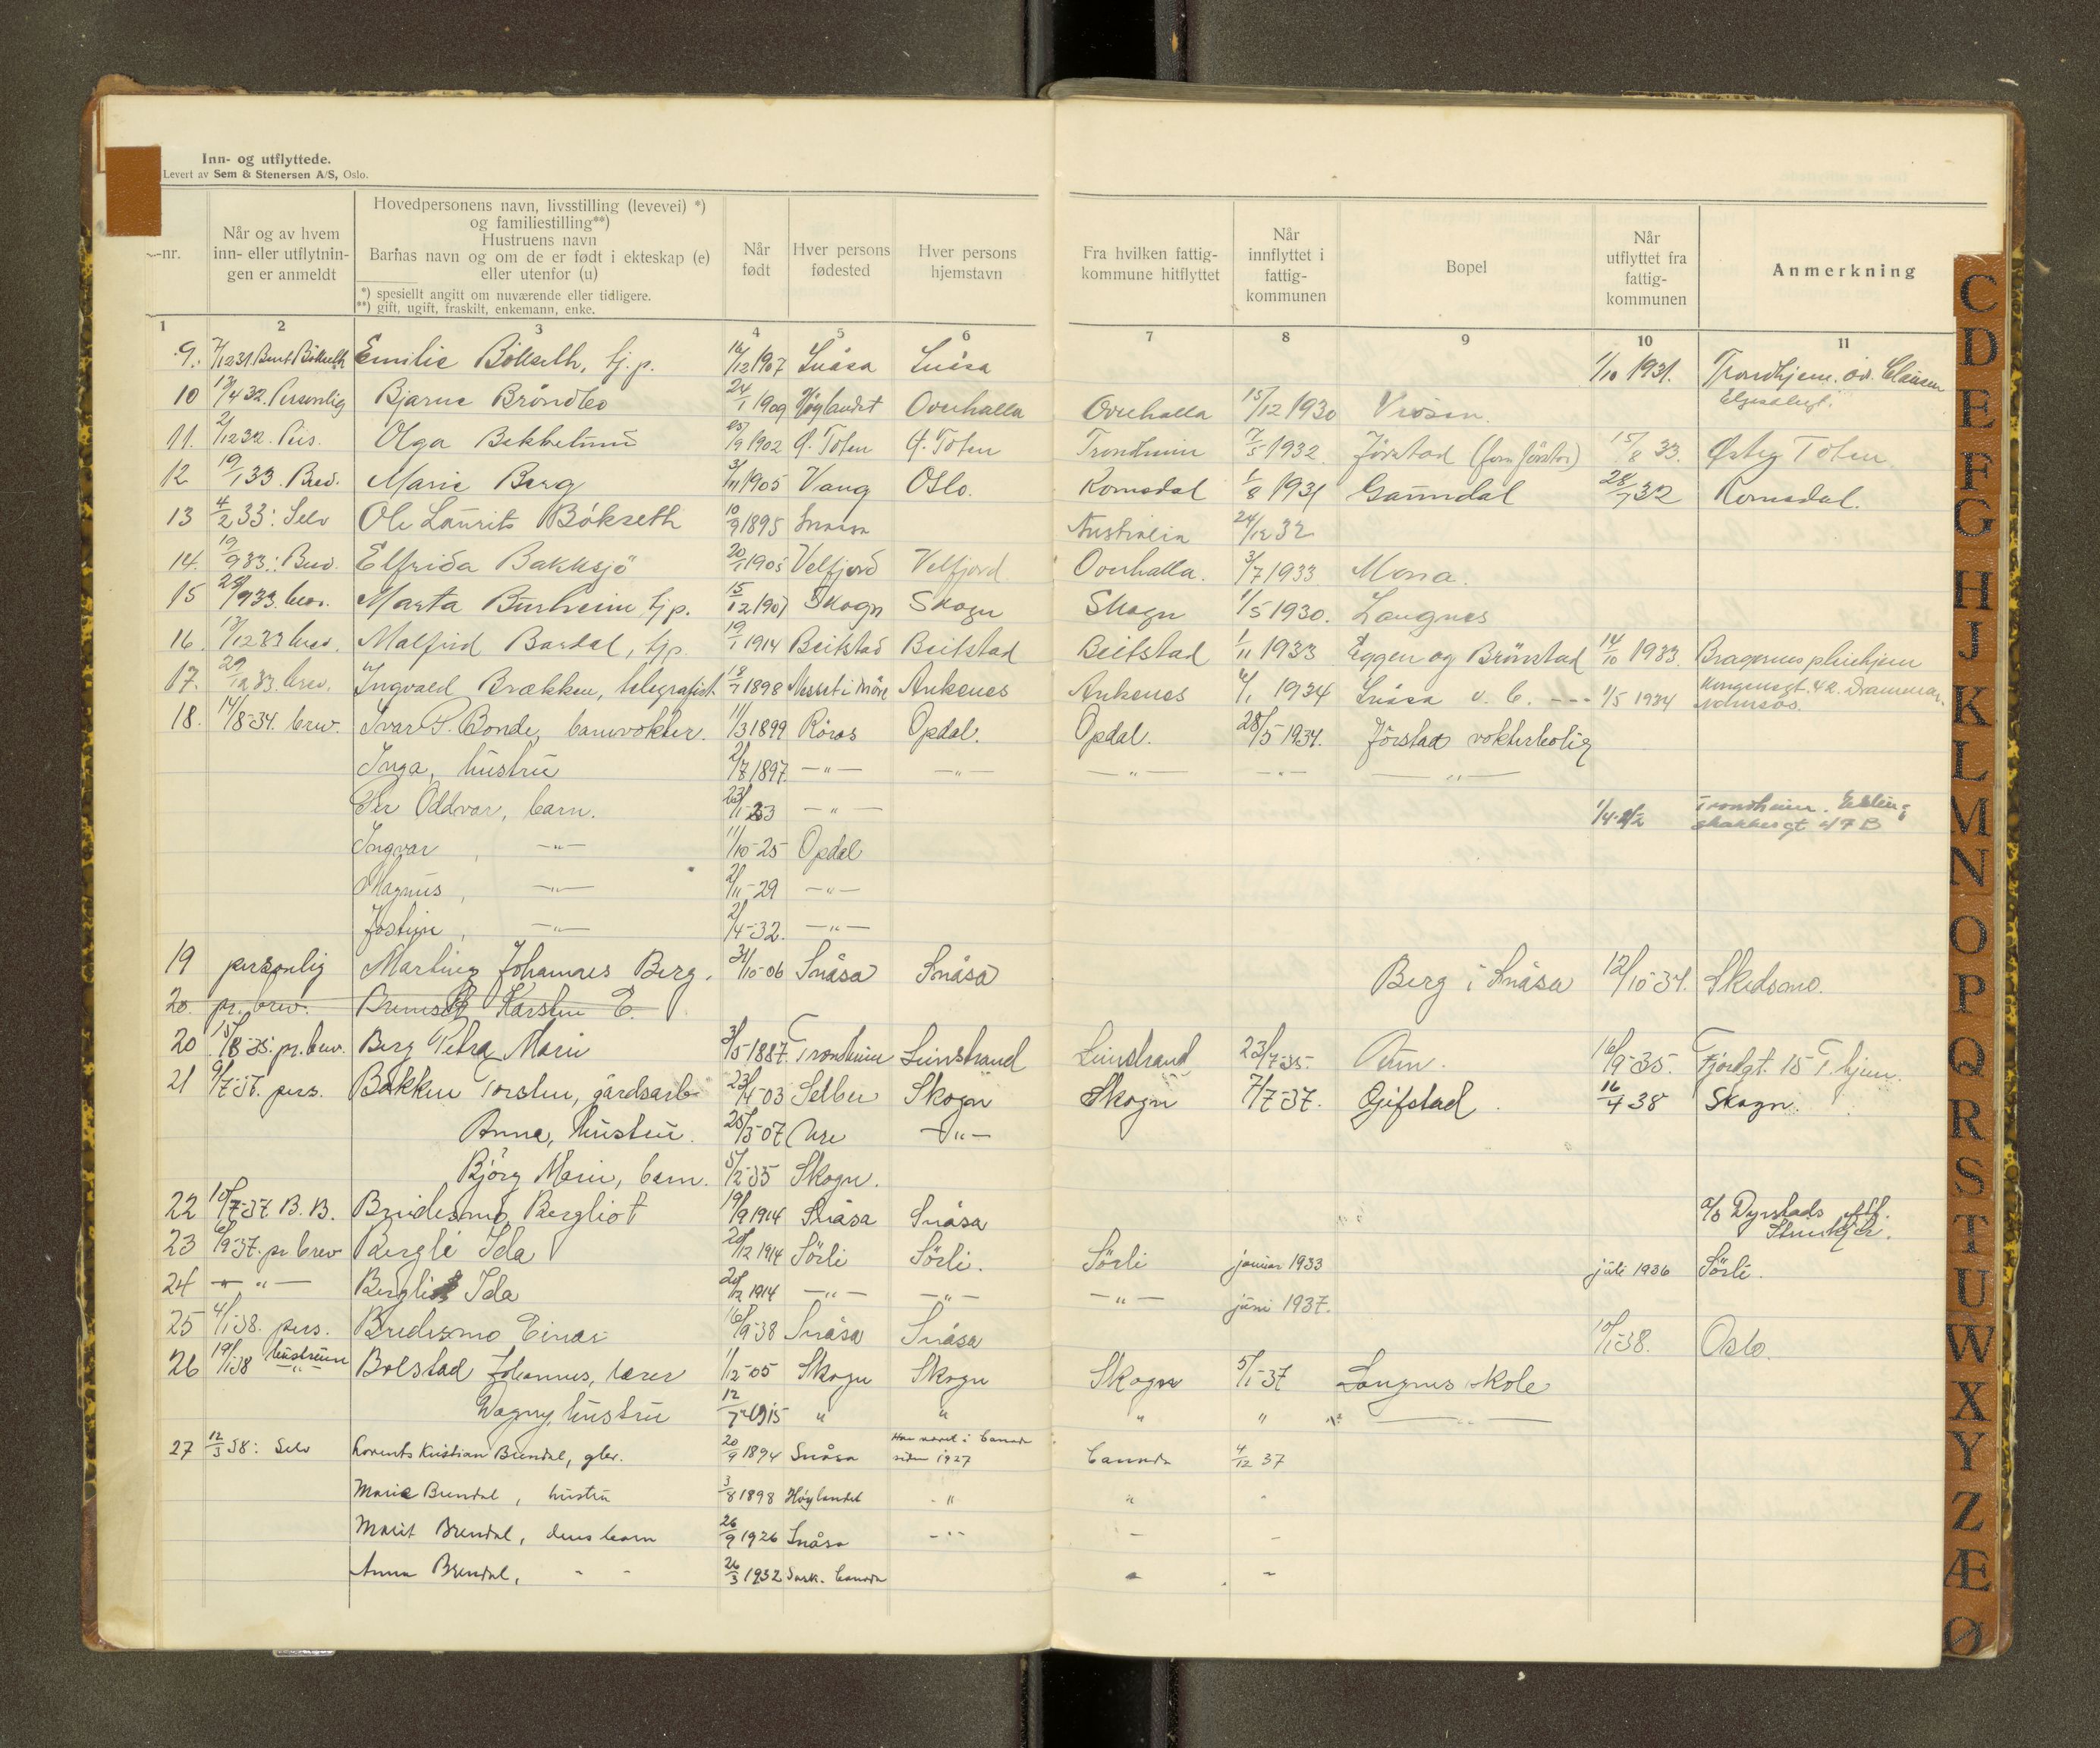 Inn- og utflyttede.
Levert av Sem & Stenersen A/S, Oslo.
-nr.
Når og av hvem inn- eller utflytningen er anmeldt
Hovedpersonens navn, livsstilling (levevei) *) og familiestilling**)
Hustruens navn
Barnas navn og om de er født i ekteskap (e) eller utenfor (u)
*) spesiellt angitt om nuværende eller tidligere.
**) gift, ugift, fraskilt, enkemann, enke.
Når født
Hver persons fødested
Hver persons hjemstavn
Fra hvilken fattigkommune hitflyttet
Når innflyttet i fattigkommunen
Bopel
Når utflyttet fra fattigkommunen
Anmerkning
1 2 3 4 5 6 7 8 9 10 11
9. 7/12 31. Bernt Bökseth Emilie Bökseth, tj.p. 16/12 1907 Snåsa Snåsa 1/10 1931. Trondhjem.
10 13/4 32. Personlig Bjarne Bröndbo 24/1 1909 Höylandet Overhalla Overhalla 15/12 1930 Viosen
11. 2/12 32. Pers. Olga Bekkelund 25/9 1902 Ø. Toten Ø. Toten Trondheim 7/5 1932 Jörstad 15/8 33. Østre Toten
12 19/1 33. Brev. Marie Berg 3/11 1905 Vang Oslo. Romsdal 1/8 1931 Gaundal 28/7 32 Romsdal.
13 4/2 33: Selv Ole Laurits Bökseth 10/9 1895 Snåsa Australia 24/12 32
14. 19/9 33: Brev. Elfrida Bakksjö 20/1 1905 Velfjord Velfjord Overhalla. 3/7 1933 Mona.
15 29/9 33. brev. Marta Burheim tj.p. 15/12 1907 Skogn Skogn Skogn 1/5 1930. Langnes
16. 13/12 33 brev. Malfrid Bardal, tj.p. 19/1 1914 Beitstad Beitstad Beitstad 1/11 1933 Eggen og Brönstad 14/10 1933. Bragernes pleiehjem
17. 29/12 33. brev. Ingvald Brækken, telegrafist. 18/7 1898 Nesset i Møre Ankenes Ankenes 4/1 1934 Snåsa v. b. --- 1/5 1934 Kongensgt. 42. Drammen. Namsos.
18. 14/8-34. brev. Ivar P. Bonde, banevokter. 11/3 1899 Röros Opdal. Opdal. 28/5-1934. Jörstad vokterbolig
Inga, hustru 2/8 1897. -"- -"- -"- -"- -"-
Per Oddvar, barn. 23/1-23 -"- 1/4-42 Trondheim.
Ingvar, -"- 11/10-25 Opdal
Magnus, -"- 2/11-29 -"-
Jostein, -"- 2/4-32. -"-
19 personlig Martin Johannes Berg. 31/10-06 Snåsa Snåsa Berg i Snåsa 12/10-34. Skedsmo.
20. pr. brev. Karsten E.
20 15/8-35. pr. brev. Berg Petra Marie 3/5-1887. Trondheim Leinstrand Leinstrand 23/7-35. 16/9-35. Fjordgt. 15 T.hjem.
21 9/7-37. pers. Bakken Torsten, gårdsarb. 23/4-03 Selbu Skogn Skogn 7/7-37. Gjefstad 16/4 38 Skogn.
Anna, hustru. 25/5-07 -"-
Björg Marie, barn. 5/2-35 Skogn.
22 10/7-37. B. B. Brudesmo, Bergliot 19/9 1914 Snåsa Snåsa a/b Dyrstads eftf. Steinkjer.
23 6/9-37. pr brev Bergli Ida 20/12 1914 Sörli Sörli. Sörli januar 1933 juli 1936 Sörli.
24 -"- Bergli Ida 20/12 1914 -"- -"- -"- juni 1937.
25 4/1-38. pers. Bredesmo Einar 16/9-38 Snåsa Snåsa 10/1-38. Oslo.
26 19/1-38 hustruen -"- Bolstad Johannes, lærer 1/12-05 Skogn Skogn Skogn 5/1-37 Langnes skole
Dagny, hustru 12/7-1915 " " " " -"-
27 12/3 38: Selv Lorents Kristian Brendal, gbr. 20/9 1894 Snåsa Har været i Canada siden 1927 Canada 4/12 37
Marie Brendal, hustru 3/8 1898 Höylandet -" " "
Marit Brendal, deres barn 26/9 1926 Snåsa -"- - -
Anna Brendal, - - 26/3 1932 Sask. Canada " -
C
D
E
F
G
H
J
K
L
M
N
O
P
Q
R
S
T
U
W
X
Y
Z
Æ
Ø